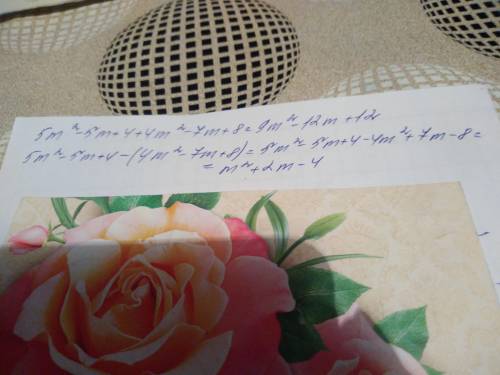 5m²-5m+4+4m²-7m+8=9m²-12m+12
5m²-5m+4-(4m²-7m+8)=5m²-5m+4-4m²+7m-8=
=m²+2m-4